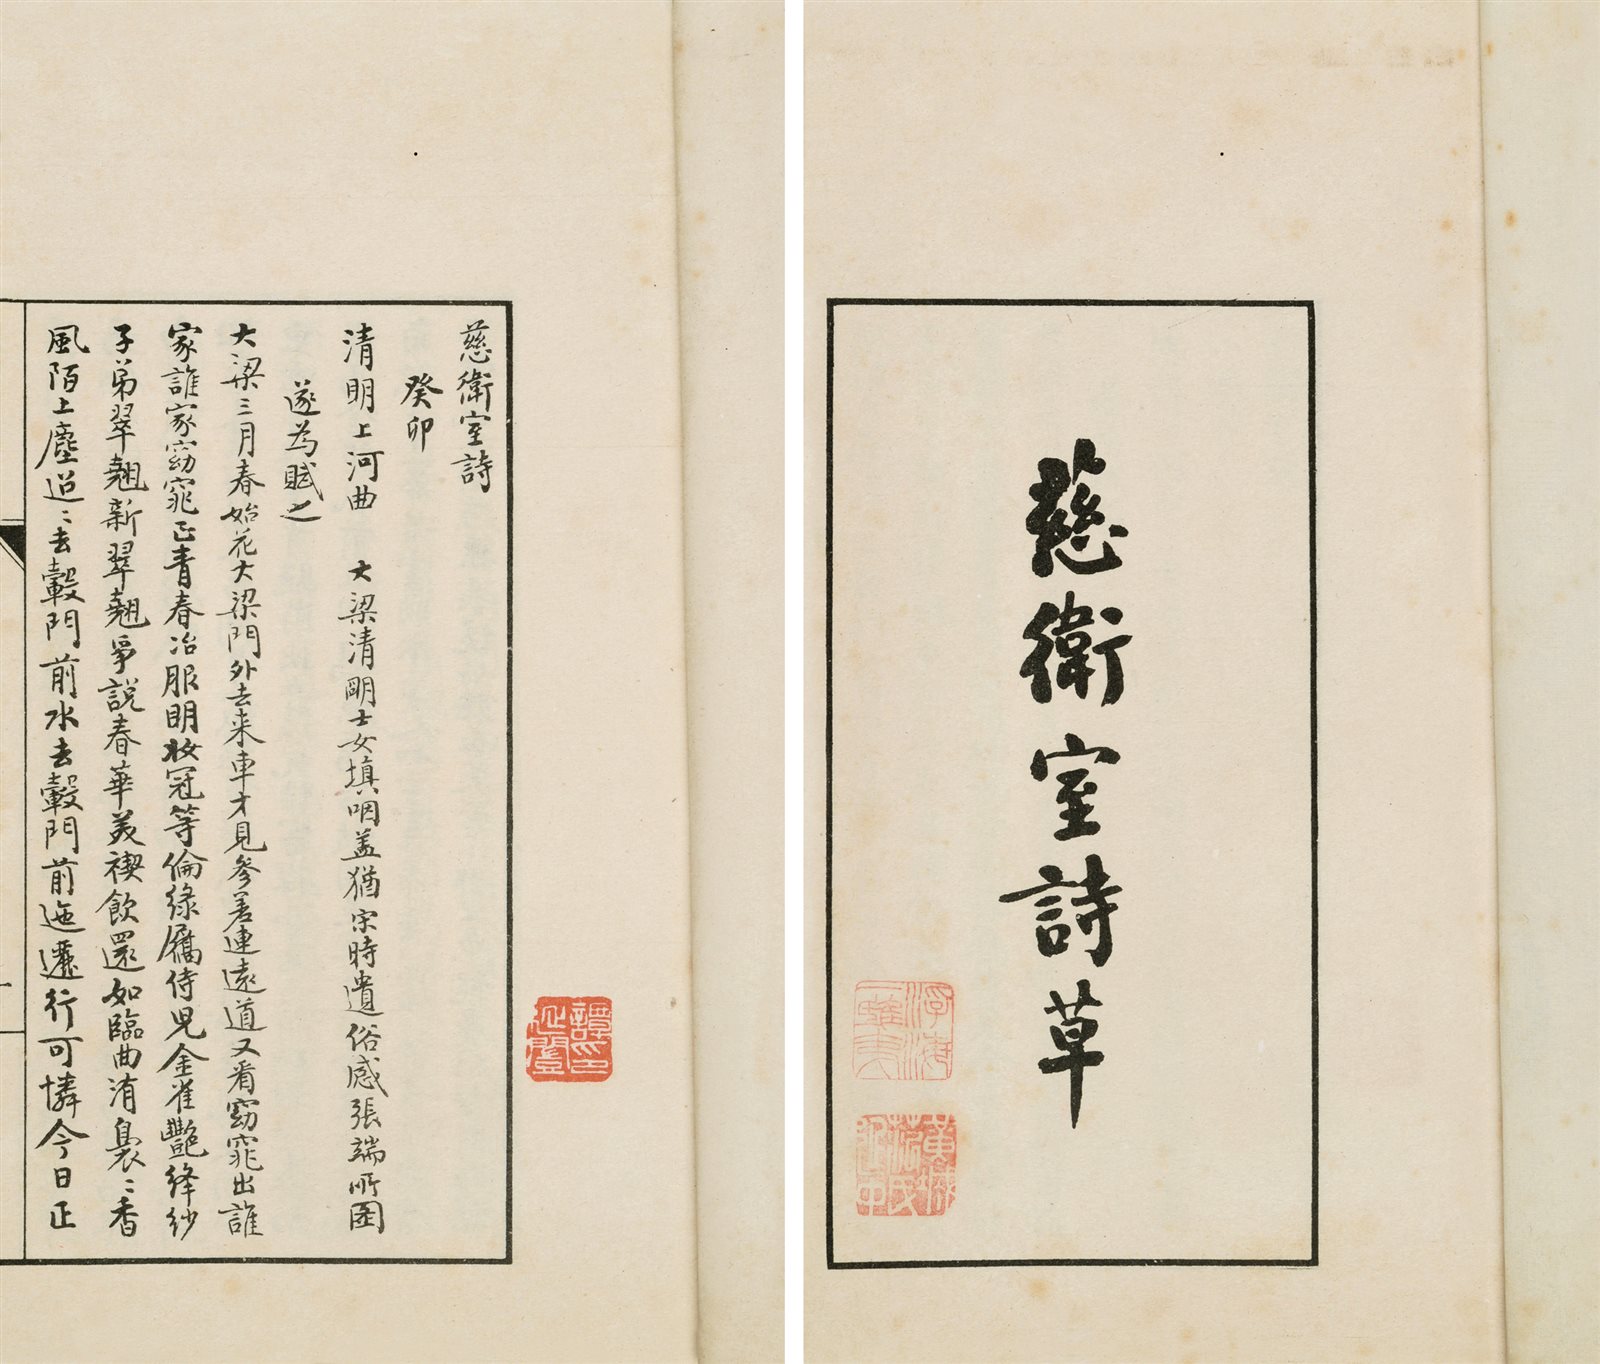 慈衛室詩草
慈衛室詩
癸卯
清明上河曲　大梁清朙士女填咽盖猶宋時遺俗感張端所圖
遂為賦之
大梁三月春始花大梁門外去来車才見參差連遠道又看窈窕出誰
家誰家窈窕正青春冶服明妝冠等倫綠屩侍兒金雀艷絳紗
子弟翠翹新翠翹爭說春華美禊飲還如臨曲洧裊〻香
風陌上塵迢〻去轂門前水去轂門前迤邐行可憐今日正
譚印延闓